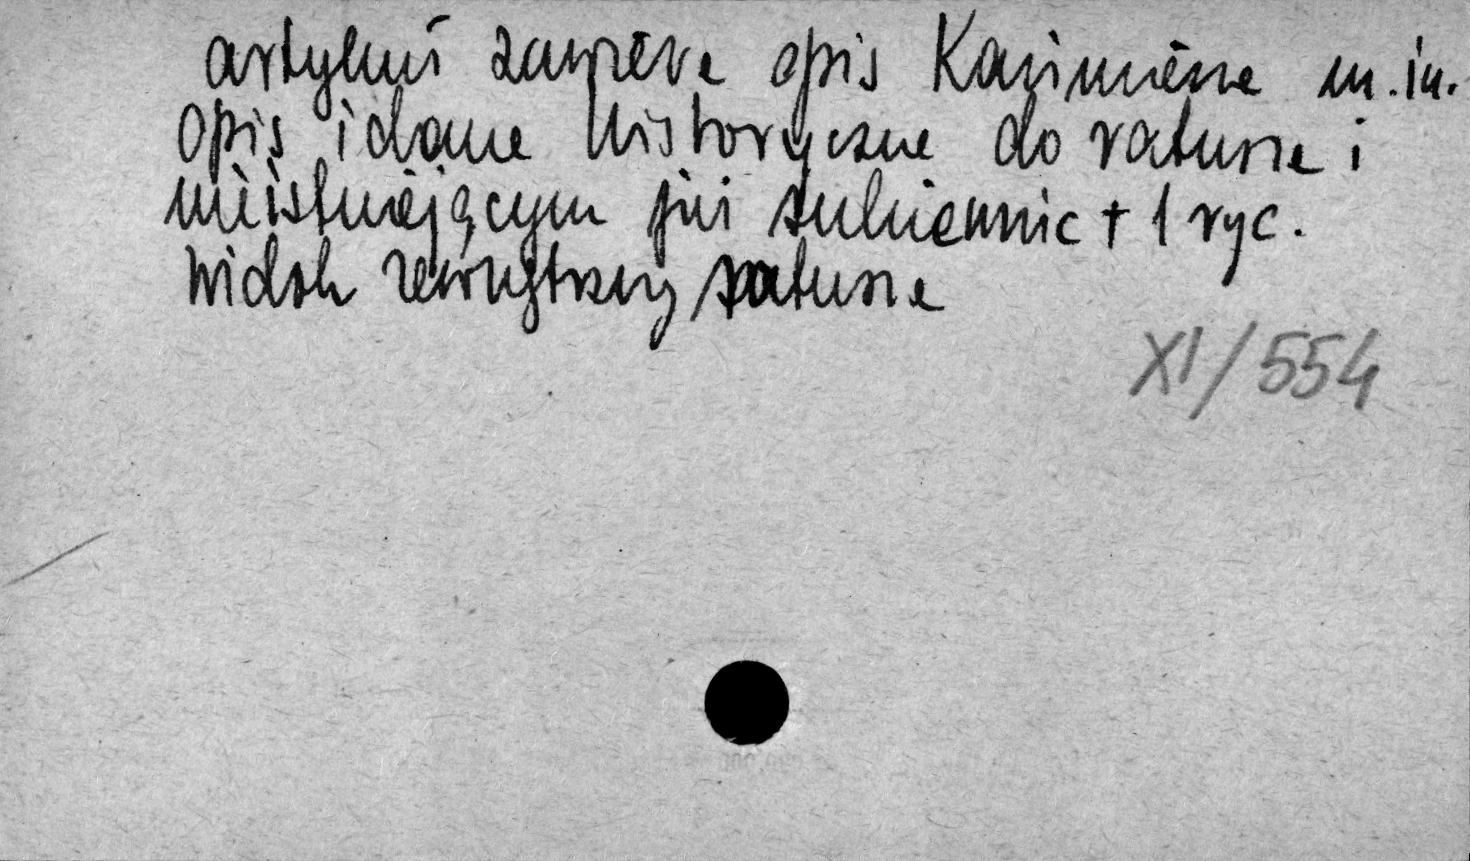 artykuł zawiera opis Kazimierza m.in.
opis i dane historyczne do ratusza i
nieistniejącym już sukiennic + 1 ryc.
widok zewnętrzny ratusza
XI/554